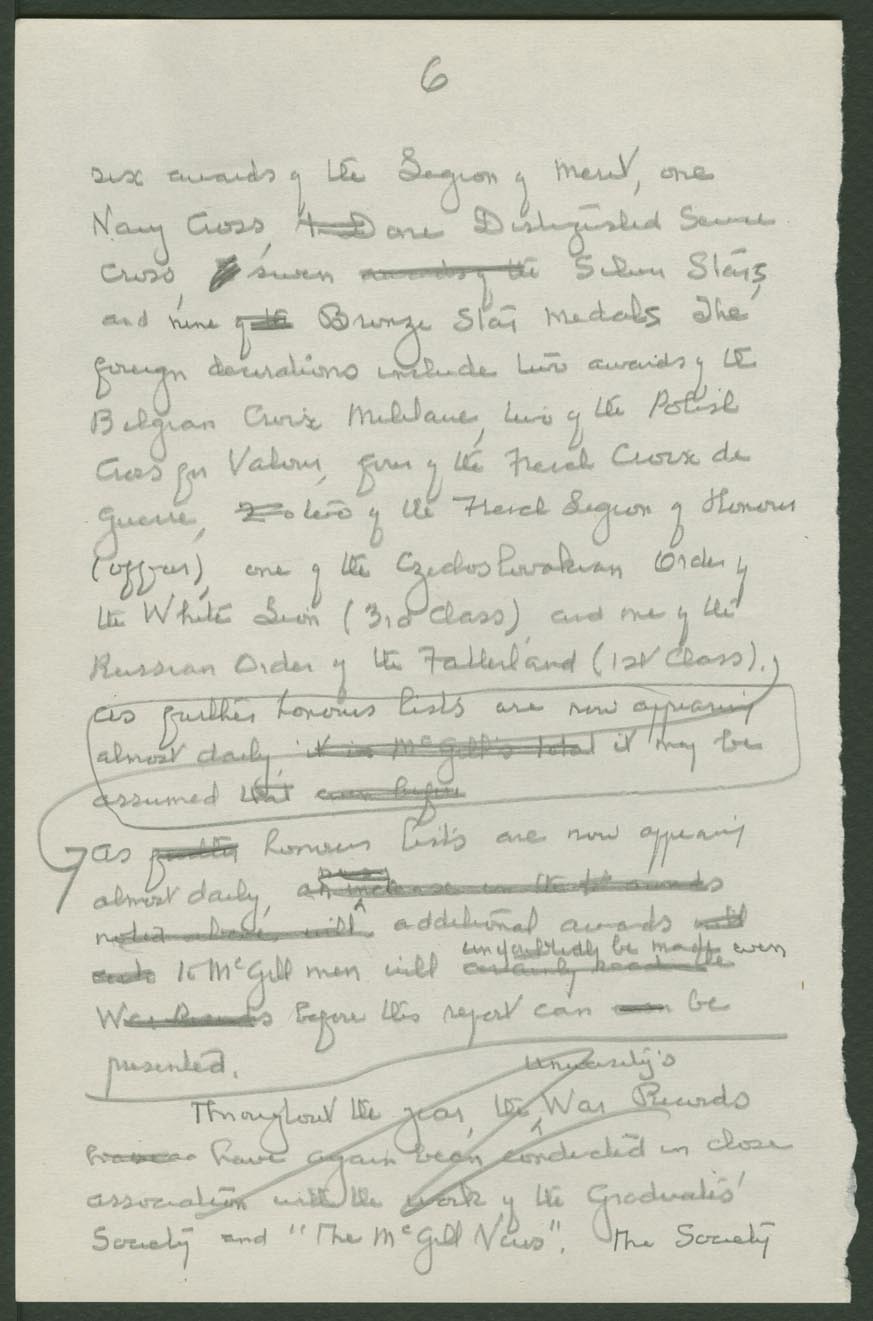 6
six awards of the Legion of Merit, one
Navy Cross, one Distinguished Service
Cross, seven awards of the Silver Stars,
and nine of the Bronze Star Medals. The
foreign decorations include two awards of the
Belgian Croix Militaire, two of the Polish
Cross for Valour, four of the French Croix de
Guerre, two of the French Legion of Honour
(officer), one of the Czechoslovakian Order of
the White Lion (3rd Class), and one of the
Russian Order of the Fatherland (1st Class).
As further honours lists are now appearing
almost daily, it is McGill's total it may be
assumed that even before
As further honours lists are now appearing
almost daily, an increase in the awards
noted above, will additional awards
to McGill men will certainly reach the
undoubtedly be made even
War Records before this report can be
presented.
University's
Throughout the year, the War Records
have again been conducted in close
association with the work of the Graduates'
Society and "The McGill News". The Society